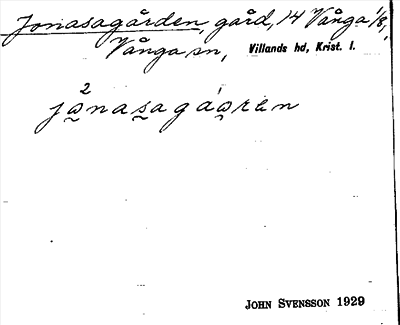 Jonasagården, gård, 14 Vånga 1/8,
Vånga sn, Villands hd, Krist. l.
JOHN SVENSSON 1929